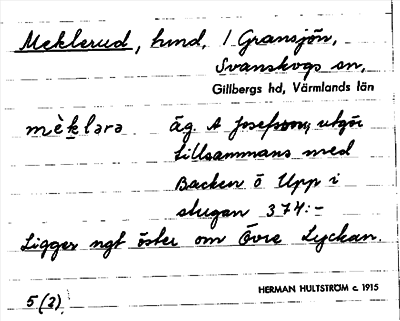 Meklerud, hmd, / Gransjön,
Svanskogs sn,
Gillbergs hd, Värmlands län
mèkləra äg. A Josefsson, utgör
tillsammans med
Backen ö Upp i
stugan 374:-
Ligger ngt öster om Övre Lyckan.
HERMAN HULTSTRÖM c. 1915
5 (2)